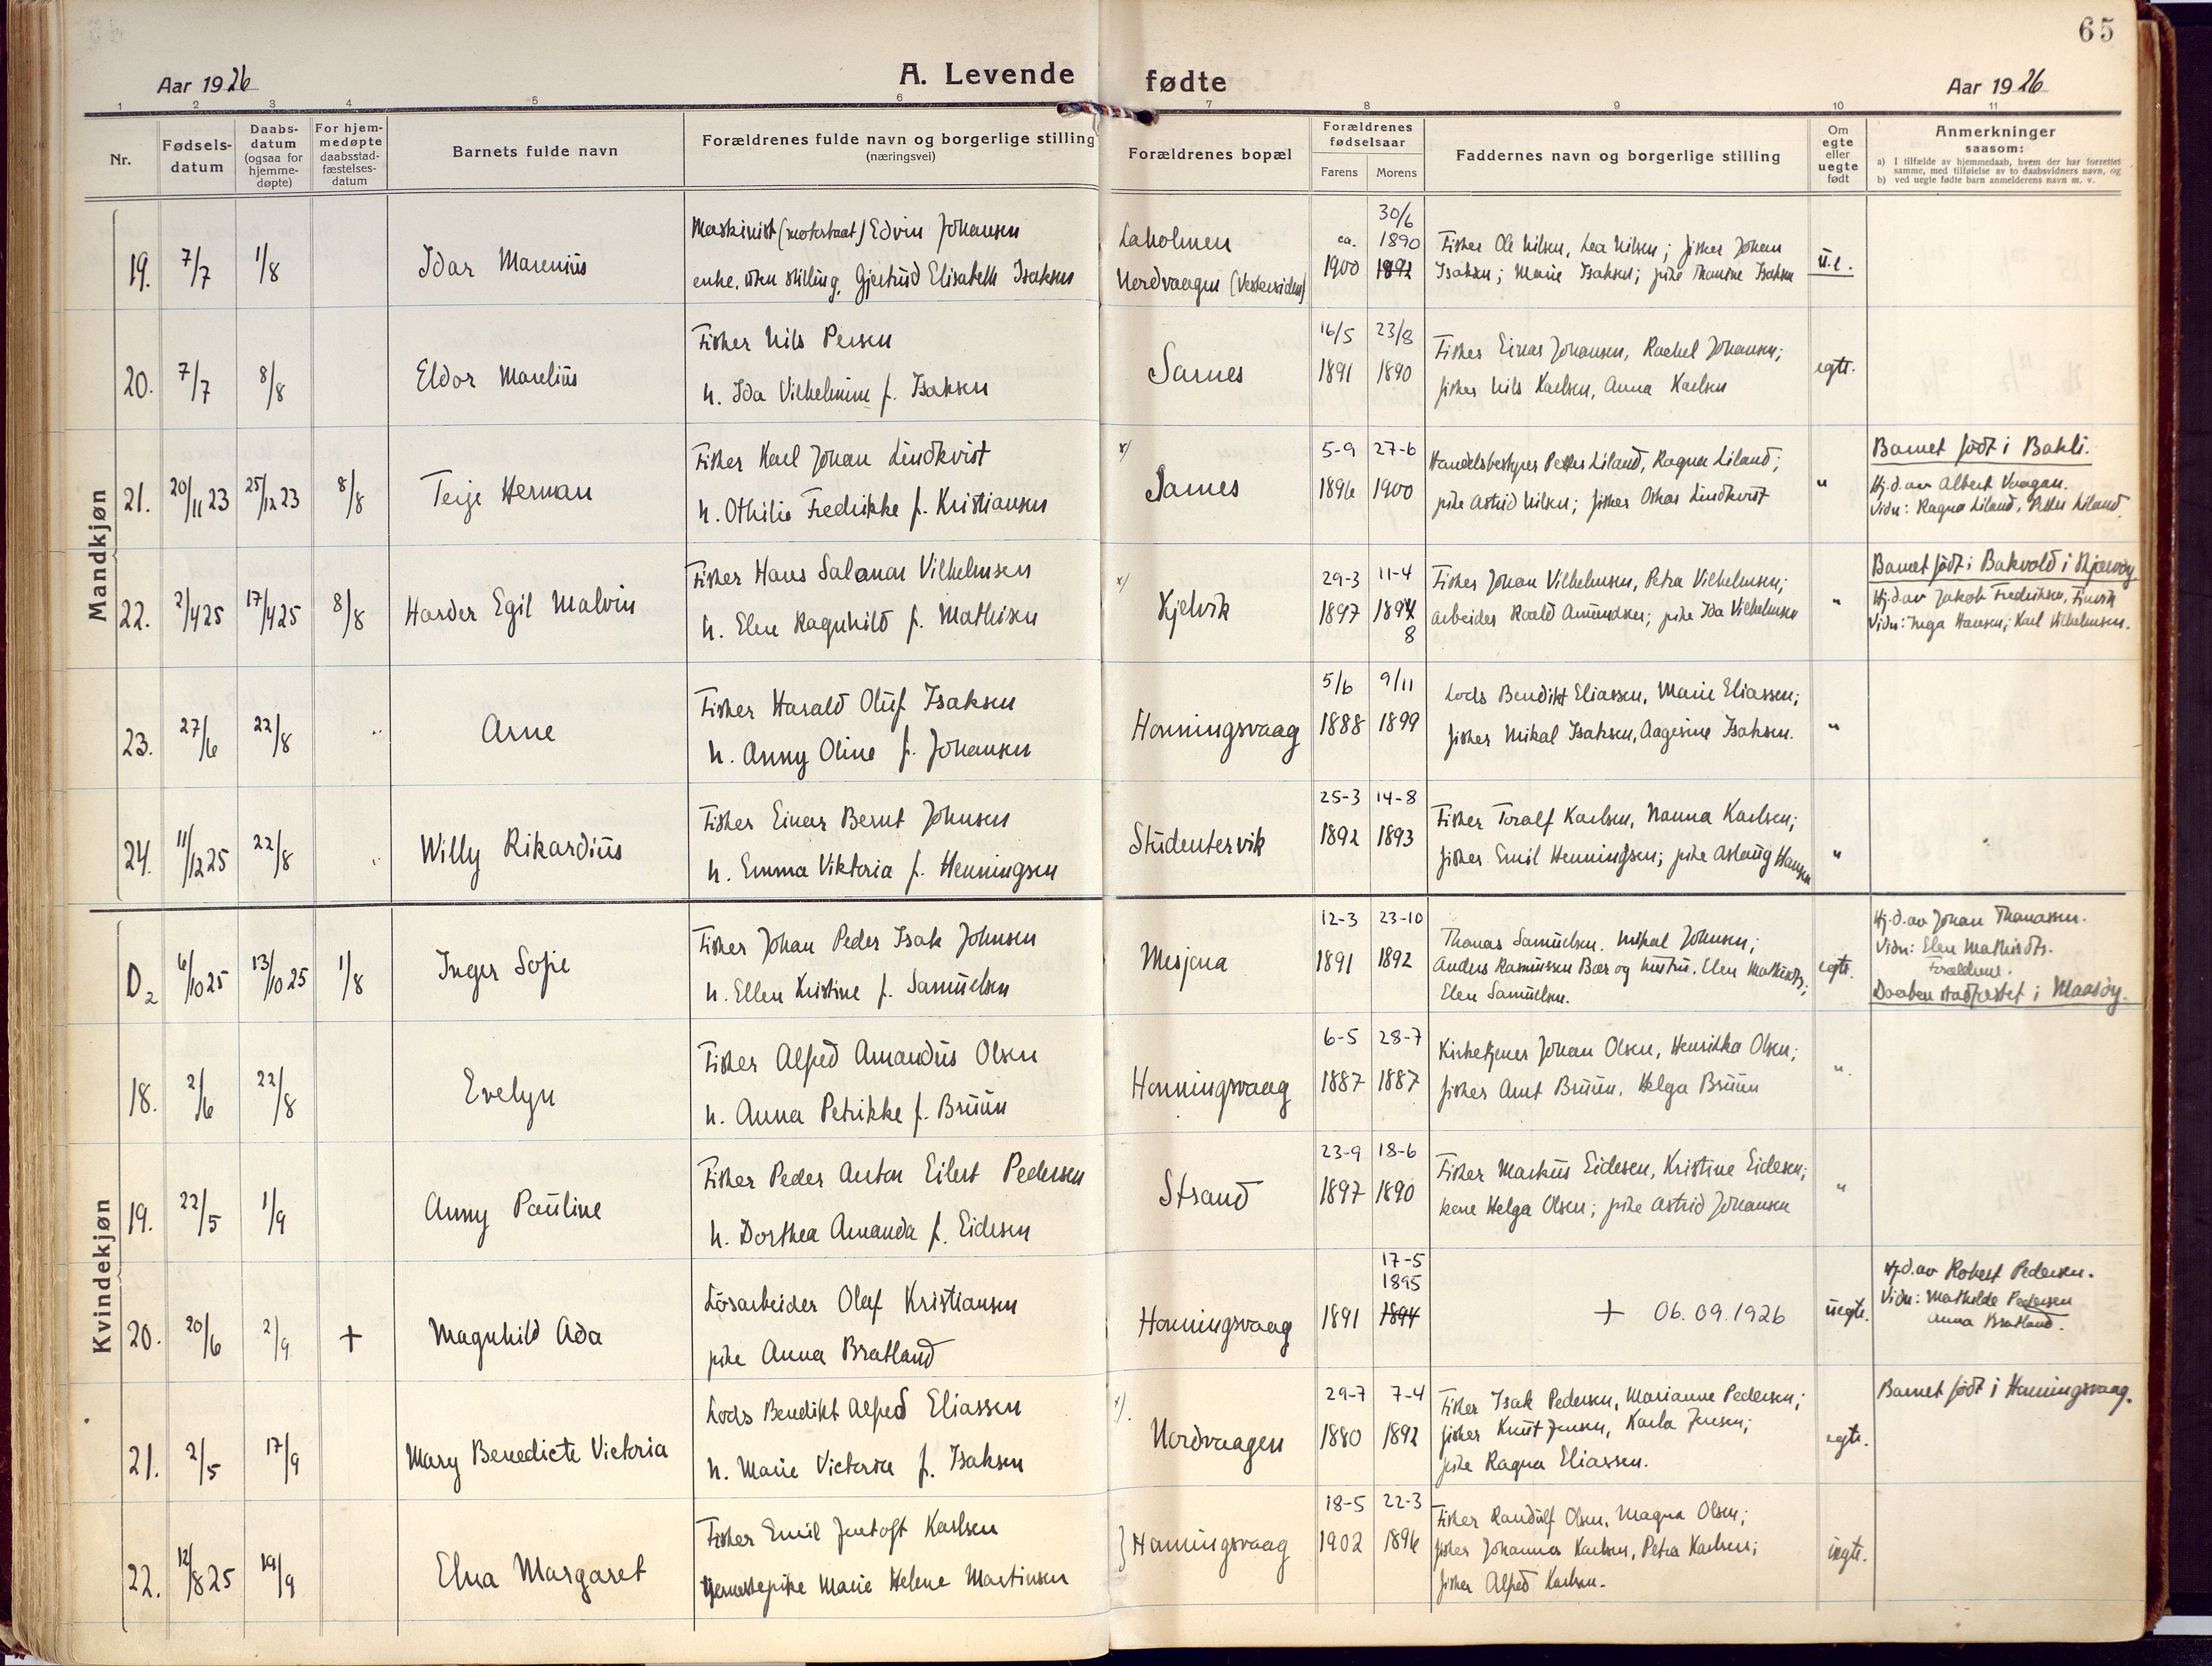 65
Aar 1926
A. Levende fødte
Aar 1926
1 2 3 4 5 6 7 8 9 10 11
Nr.
Fødsels-
datum
Daabs-
datum
(ogsaa for
hjemme-
døpte)
For hjem-
medøpte
daabsstad-
fæstelses-
datum
Barnets fulde navn
Forældrenes fulde navn og borgerlige stilling
(næringsvei)
Forældrenes bopæl
Forældrenes
fødselsaar
Farens Morens
Faddernes navn og borgerlige stilling
Om
egte
eller
uegte
født
Anmerkninger
saasom:
a) I tilfælde av hjemmedaab, hvem der har forrettet
samme, med tilføielse av to daabsvidners navn, og
b) ved uegte fødte barn anmelderens navn m. v.
Mandkjøn
19. 7/7 1/8 Idar Marenius
Maskinist (motorbaat) Edvin Johansen
enke, uten stilling, Gjertrud Elisabeth Isaksen
Laholmen
Nordvaagen (Vestersiden)
ca. 1900
30/6 1890 1892
Fisker Ole Nilsen, Lea Nilsen; fisker Johan
Isaksen; Marie Isaksen; pike Thomine Isaksen
u.e.
20. 7/7 8/8 Eldor Marelius
Fisker Nils Persen
h. Ida Vilhelmine f. Isaksen
Sarnes
16/5 1891
23/8 1890
Fisker Einar Johansen, Rachel Johansen;
fisker Nils Karlsen, Anna Karlsen
egte.
21. 20/11 23 25/12 23 8/8 Terje Herman
Fisker Karl Johan Lindkvist
h. Othilie Fredrikke f. Kristiansen
x/ Sarnes
5-9 1896
27-6 1900
Handelsbestyrer Petter Liland, Ragna Liland;
pike Astrid Nilsen; fisker Oskar Lindkvist
"
Barnet født i Bakli.
Hj.d. av Albert Vaagan.
Vidn: Ragna Liland, Petter Liland.
22. 2/4 25 17/4 25 8/8 Harder Egil Malvin
Fisker Hans Salamon Vilhelmsen
h. Elen Ragnhild f. Mathisen
x/ Kjelvik
29-3 1897
11-4 1894 8
Fisker Johan Vilhelmsen, Petra Vilhelmsen;
arbeider Roald Amundsen; pike Ida Vilhelmsen
"
Barnet født i Bakvold i Skjervøy
Hj.d. av Jakob Fredriksen,
Vidn: Inga Hansen; Karl Vilhelmsen.
23. 27/6 22/8 " Arne
Fisker Harald Oluf Isaksen
h. Anny Oline f. Johansen
Honningsvaag
5/6 1888
9/11 1899
Lods Bendikt Eliassen, Marie Eliassen;
fisker Mikal Isaksen, Aagesine Isaksen.
"
24. 11/12 25 22/8 " Willy Rikardius
Fisker Einar Bernt Johnsen
h. Emma Viktoria f. Henningsen
Studentervik
25-3 1892
14-8 1893
Fisker Toralf Karlsen, Nanna Karlsen;
fisker Emil Henningsen; pike Aslaug Hansen
"
Kvindekjøn
D2 6/10 25 13/10 25 1/8 Inger Sofie
Fisker Johan Peder Isak Johnsen
h. Ellen Kristine f. Samuelsen
Mesjona
12-3 1891
23-10 1892
Thomas Samuelsen, Mikal Johnsen;
Anders Rasmussen Bær og hustru, Elen Mathisdtr;
Elen Samuelsen.
egte.
Hj.d. av Johan Thomassen.
Vidn: Elen Mathisdtr.
Forældrene.
Daaben stadfæstet i Maasøy.
18. 2/6 22/8 Evelyn
Fisker Alfred Amandus Olsen
h. Anna Petrikke f. Bruun
Honningsvaag
6-5 1887
28-7 1887
Kirketjener Johan Olsen, Henrikka Olsen;
fisker Arnt Bruun, Helga Bruun
"
19. 22/5 1/9 Anny Pauline
Fisker Peder Anton Eilert Pedersen
h. Dorthea Amanda f. Eidesen
Strand
23-9 1897
18-6 1890
Fisker Markus Eidesen, Kristine Eidesen;
kone Helga Olsen; pike Astrid Johansen
"
20. 20/6 2/9 + Magnhild Ada
Løsarbeider Olaf Kristiansen
pike Anna Bratland
Honningsvaag
1891
17-5 1895 1894
+ 06.09.1926
uegte.
Hj.d. av Robert Pedersen.
Vidn: Mathilde Pedersen
Anna Bratland.
21. 2/5 17/9 Mary Benedicte Victoria
Lods Bendikt Alfred Eliassen
h. Marie Victoria f. Isaksen
x/. Nordvaagen
29-7 1880
7-4 1892
Fisker Isak Pedersen, Marianne Pedersen;
fisker Knut Jensen, Karla Jensen;
pike Ragna Eliassen.
egte.
Barnet født i Honningsvaag.
22. 12/8 25 19/9 Elna Margaret
Fisker Emil Jentoft Karlsen
tjenestepike Marie Helene Martinsen
} Honningsvaag
18-5 1902
22-3 1896
Fisker Randulf Olsen, Magna Olsen;
fisker Johannes Karlsen, Petra Karlsen;
fisker Alfred Karlsen.
uegte.